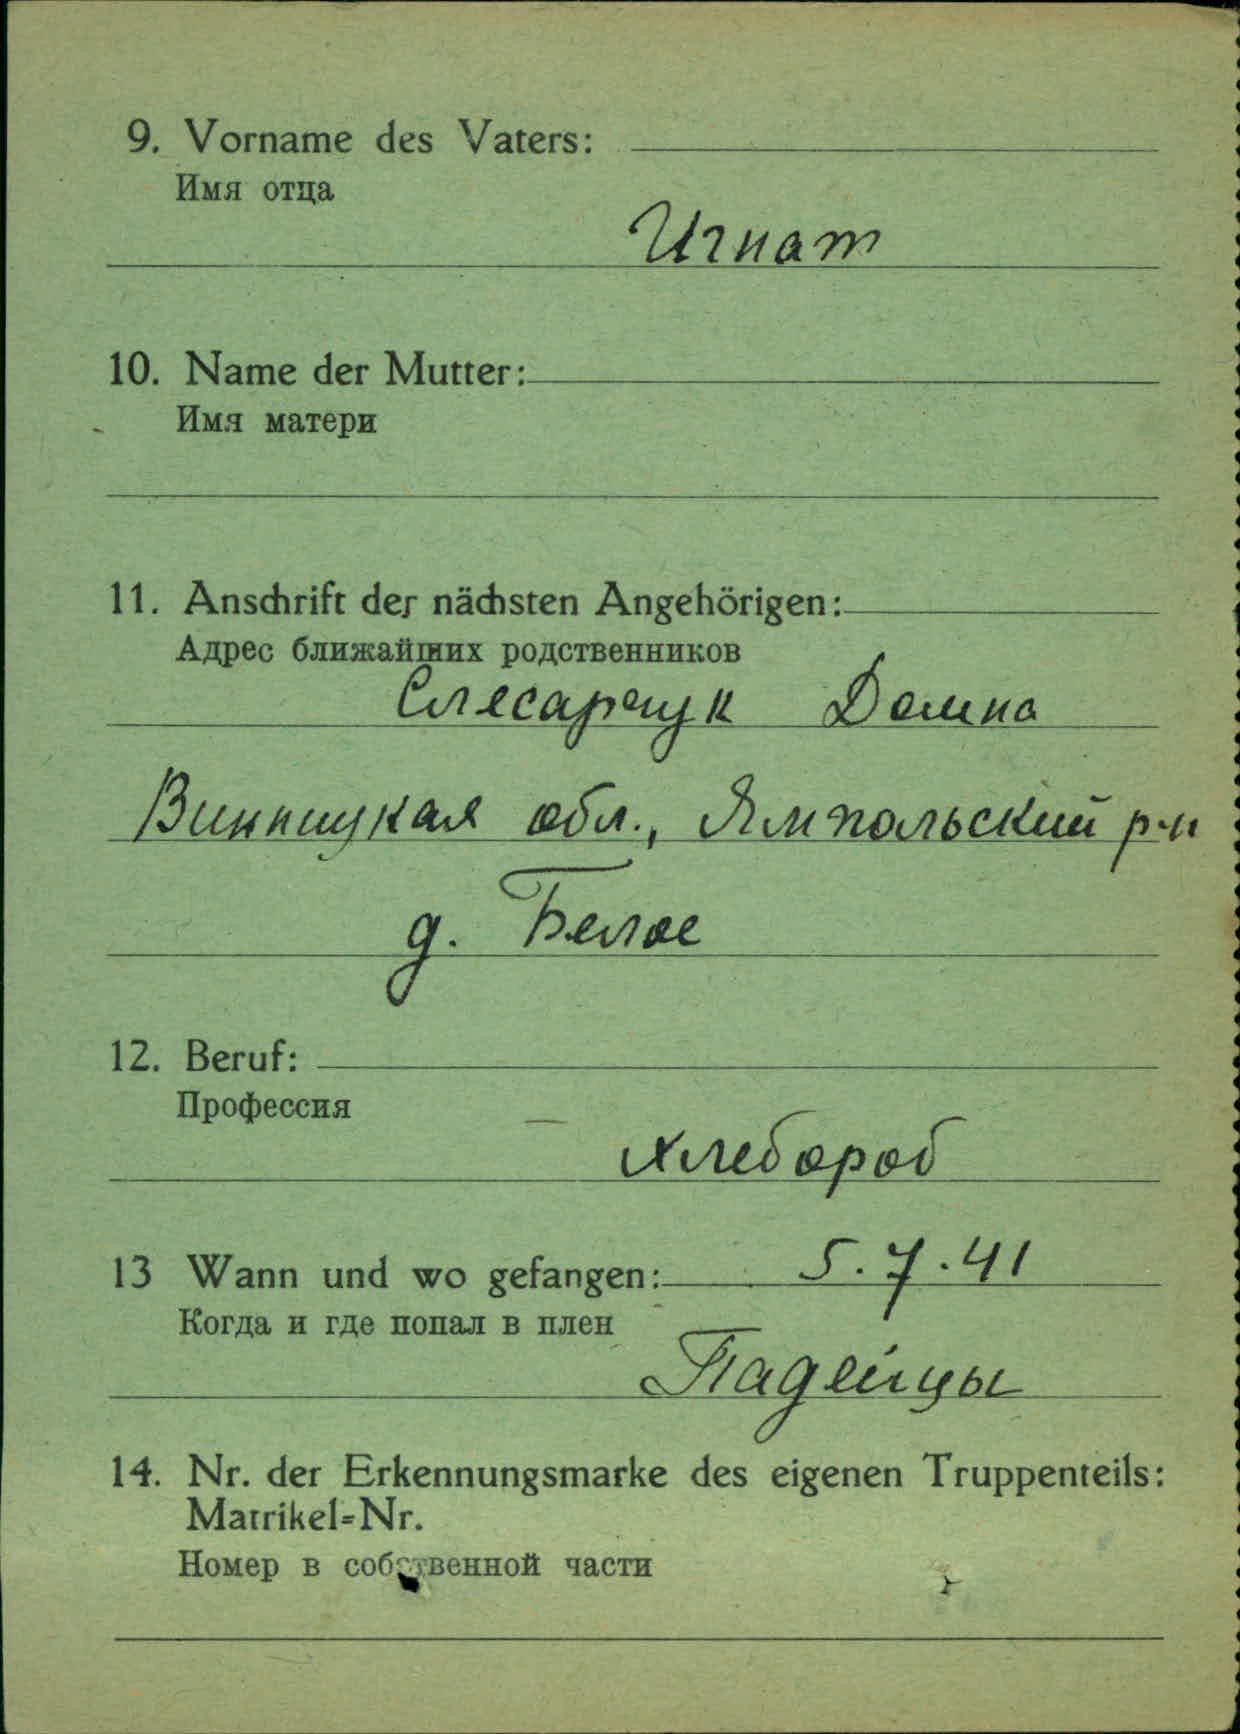 9. Vorname des Vaters:
Имя отца
Игнат
10. Name der Mutter:
Имя матери
11. Anschrift der nächsten Angehörigen:
Адрес ближайших родственников
Слесарчук Домна
Винницкая обл., Ямпольский р-н
д. Белое
12. Beruf:
Профессия
хлебороб
13 Wann und wo gefangen: 5.7.41
Когда и где попал в плен
14. Nr. der Erkennungsmarke des eigenen Truppenteils:
Matrikel=Nr.
Номер в собственной части